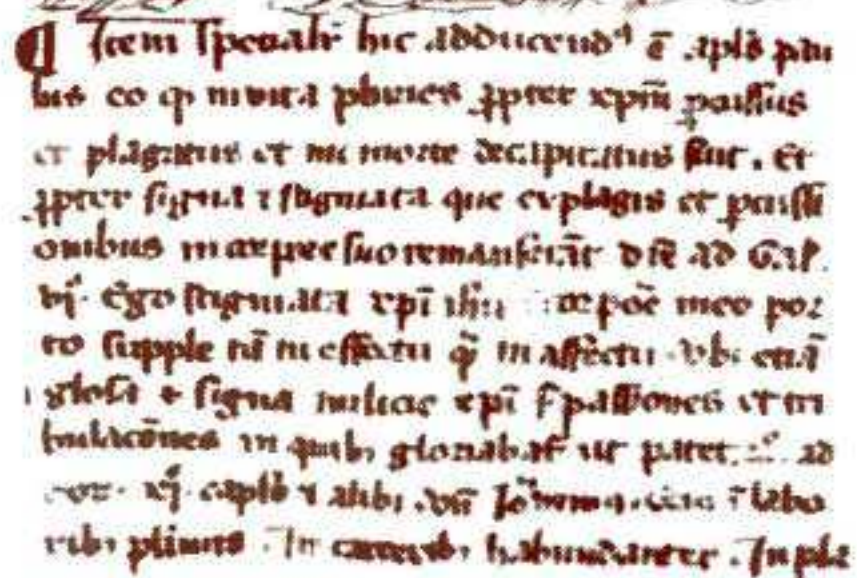 ¶ Item specialr̄ hic adducendꝰ ē apl̄s pau
lus eo ꝙ in vita pluries ꝓpter xp̄m ꝑcussus
et plagatus et in morte decapitatus fuit . Et
ꝓpter signa ⁊ stigmata que ex plagis et ꝑcussi
onibus in corpore suo remanserūt ad Gal .
vjº . Ego stigmata xp̄i ih̄u corpoē meo por
to supple nō in effectu in affectu . vbi etiā
glosa signa milicie xp̄i passiones et tri
bulacōnes in quibꝫ gloriabat̄ ut patet ad
cor . xjº . caplō ⁊ alibi . labo
ribꝫ plimis . In carceribꝫ habundanter . In pla